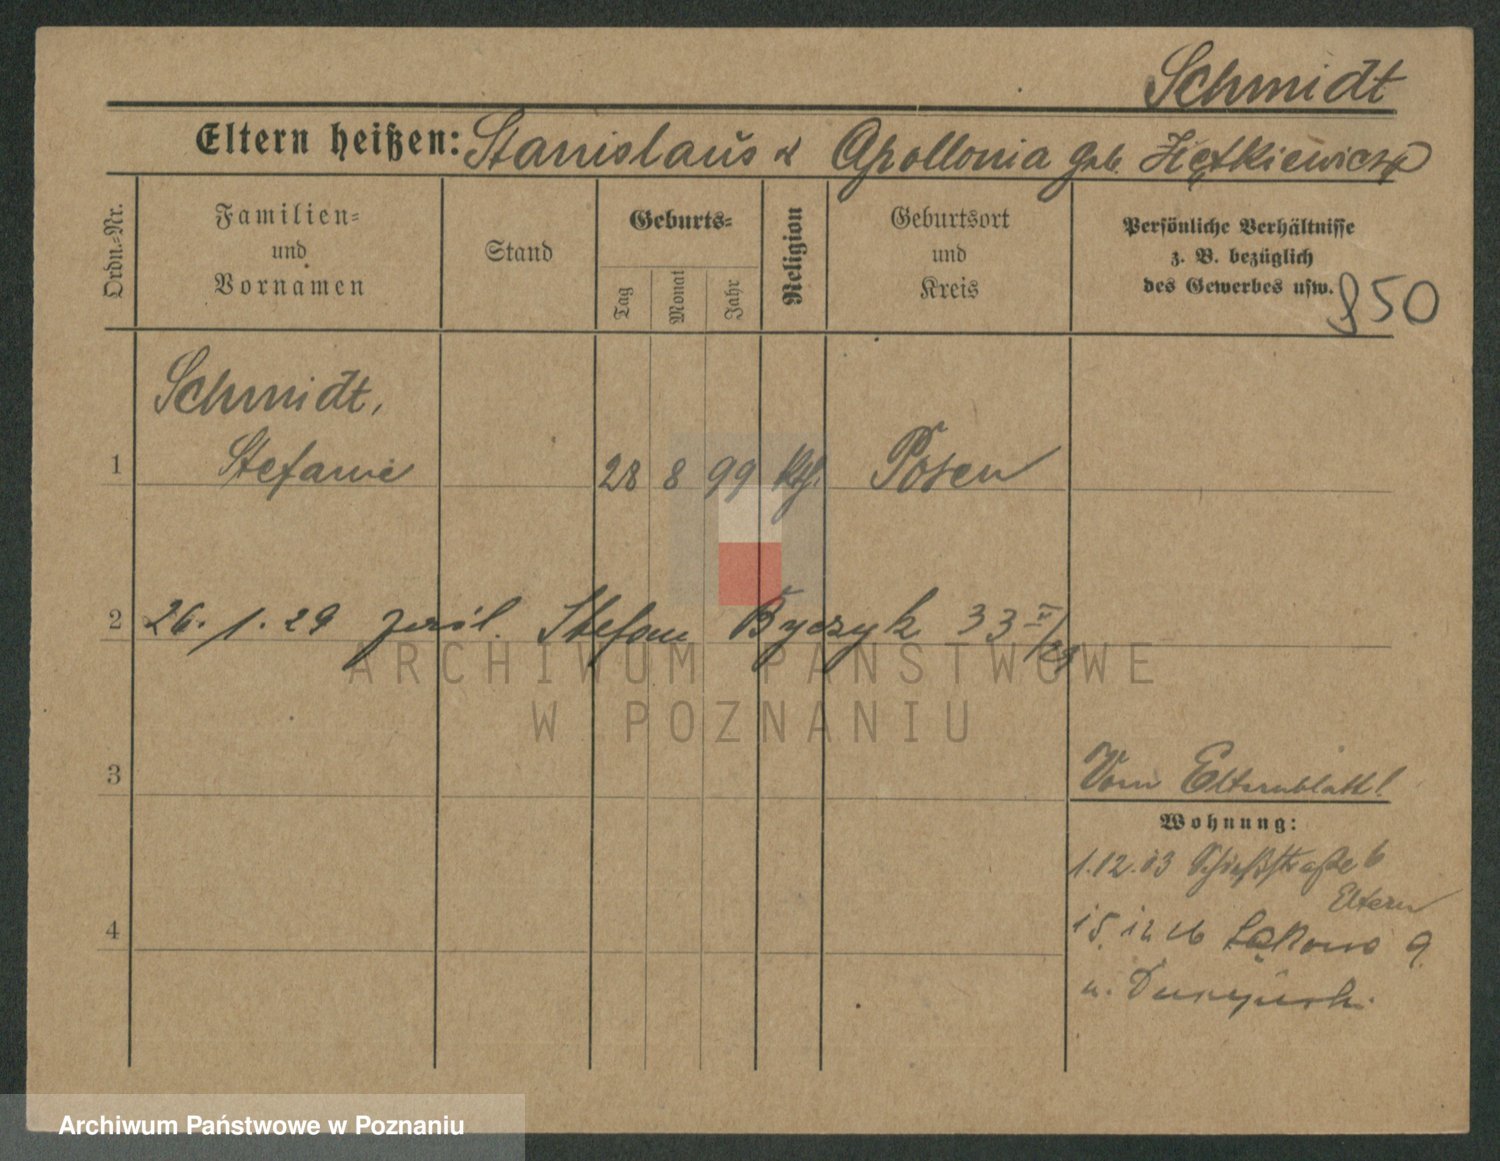 Schmidt
Eltern heißen: Stanislaus u Apollonia geb.
Ordn.-Nr.
Familien-
und
Vornamen
Stand
Geburts-
Tag
Monat
Jahr
Religion
Geburtsort
und
Kreis
Persönliche Verhältnisse
z. B. bezüglich
des Gewerbes usw.
850
Schmidt,
1 Stefanie 28 8 99 kth. Posen
2 26. 1. 29 zaśl. Stefan Byczyk 33
ARCHIWUM PAŃSTWOWE
W POZNANIU
3 Vom Elternblatt
Wohnung:
1.12.13 Schießstraße 6
Eltern
4 15. 12 26 Łąkowa 9.
u.
Archiwum Państwowe w Poznaniu